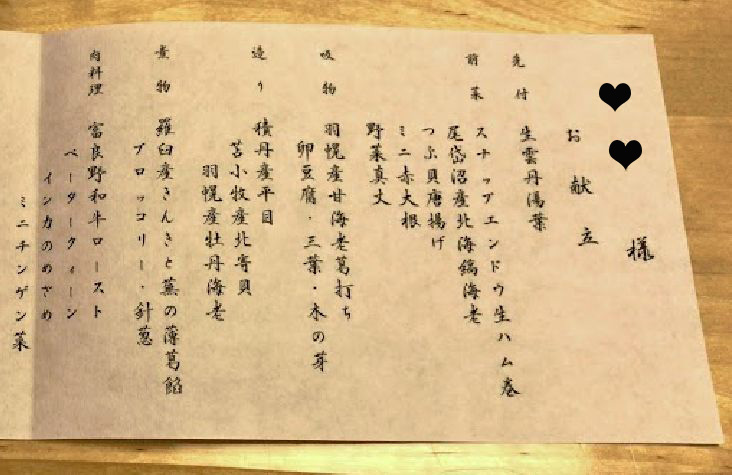 様
お献立
先付
生雲丹湯葉
前菜
スナップエンドウ生ハム巻
尾岱沼産北海縞海老
つぶ貝唐揚げ
ミニ赤大根
野菜真丈
吸物
羽幌産甘海老葛打ち
卵豆腐・三葉・木の芽
造り
積丹産平目
苫小牧産北寄貝
羽幌産牡丹海老
煮物
羅臼産きんきと蕪の薄葛餡
ブロッコリー・針葱
肉料理
富良野和牛ロースト
ベータークィーン
インカのめざめ
ミニチンゲン菜